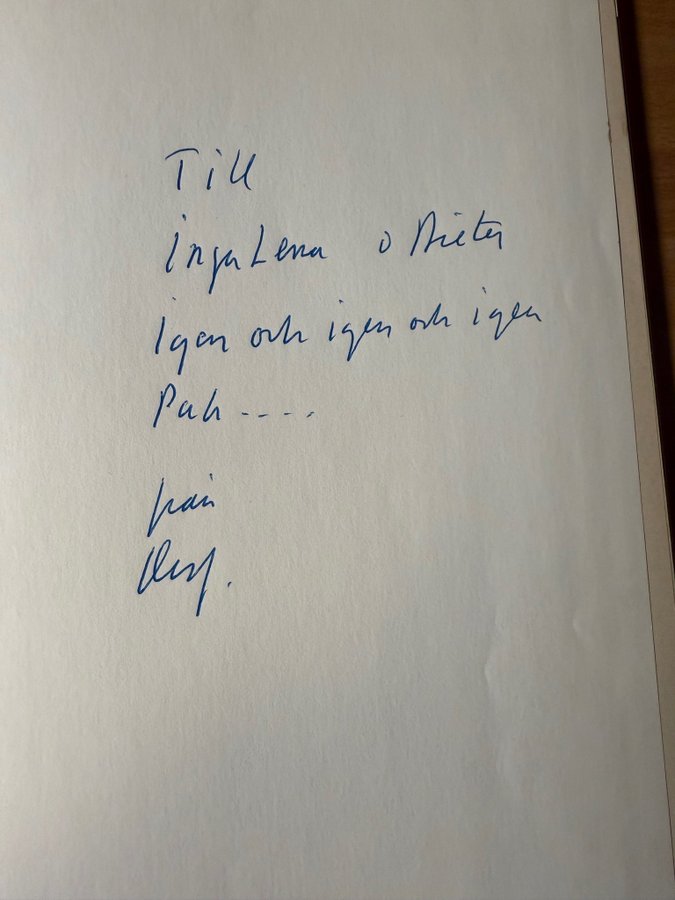 Till
Inga Lena o Dieter
Igen och igen och igen
Puh ----
från